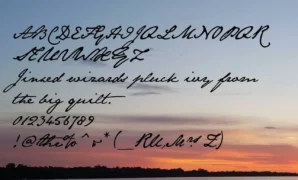 ABCDEFGHIJKLMNOPQR
STUVWXYZ
Jinxed wizards pluck ivy from
the big quilt.
0123456789
!@#%^&*(